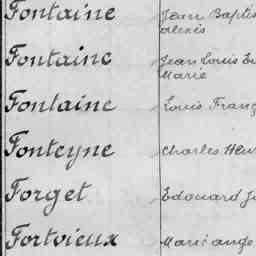 Fontaine Jean Baptis
alexis
Fontaine Jean Louis Eu
Marie
Fontaine Louis Franç
Fonteyne Charles Hen
Forget Edouard Jo
Fortvieux Marie ange